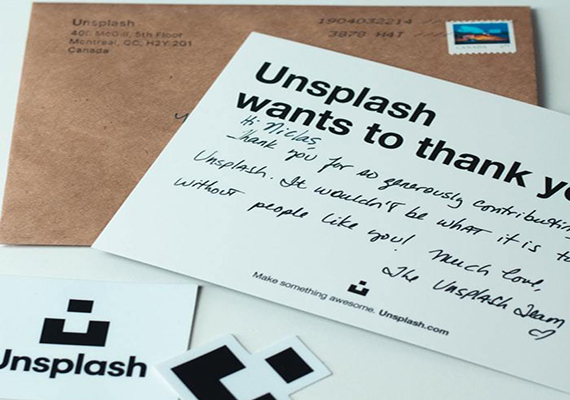 Unsplash
400 McGill, 5th Floor
Montreal, QC, H2Y 2G1
Canada
1904032214
3870 H4T
CANADA
Unsplash
wants to thank yo
Hi Niclas,
Thank you for so generously contributing
Unsplash. It wouldn't be what it is to
without people like you! Much love,
The Unsplash Team
Make something awesome. Unsplash.com
Unsplash